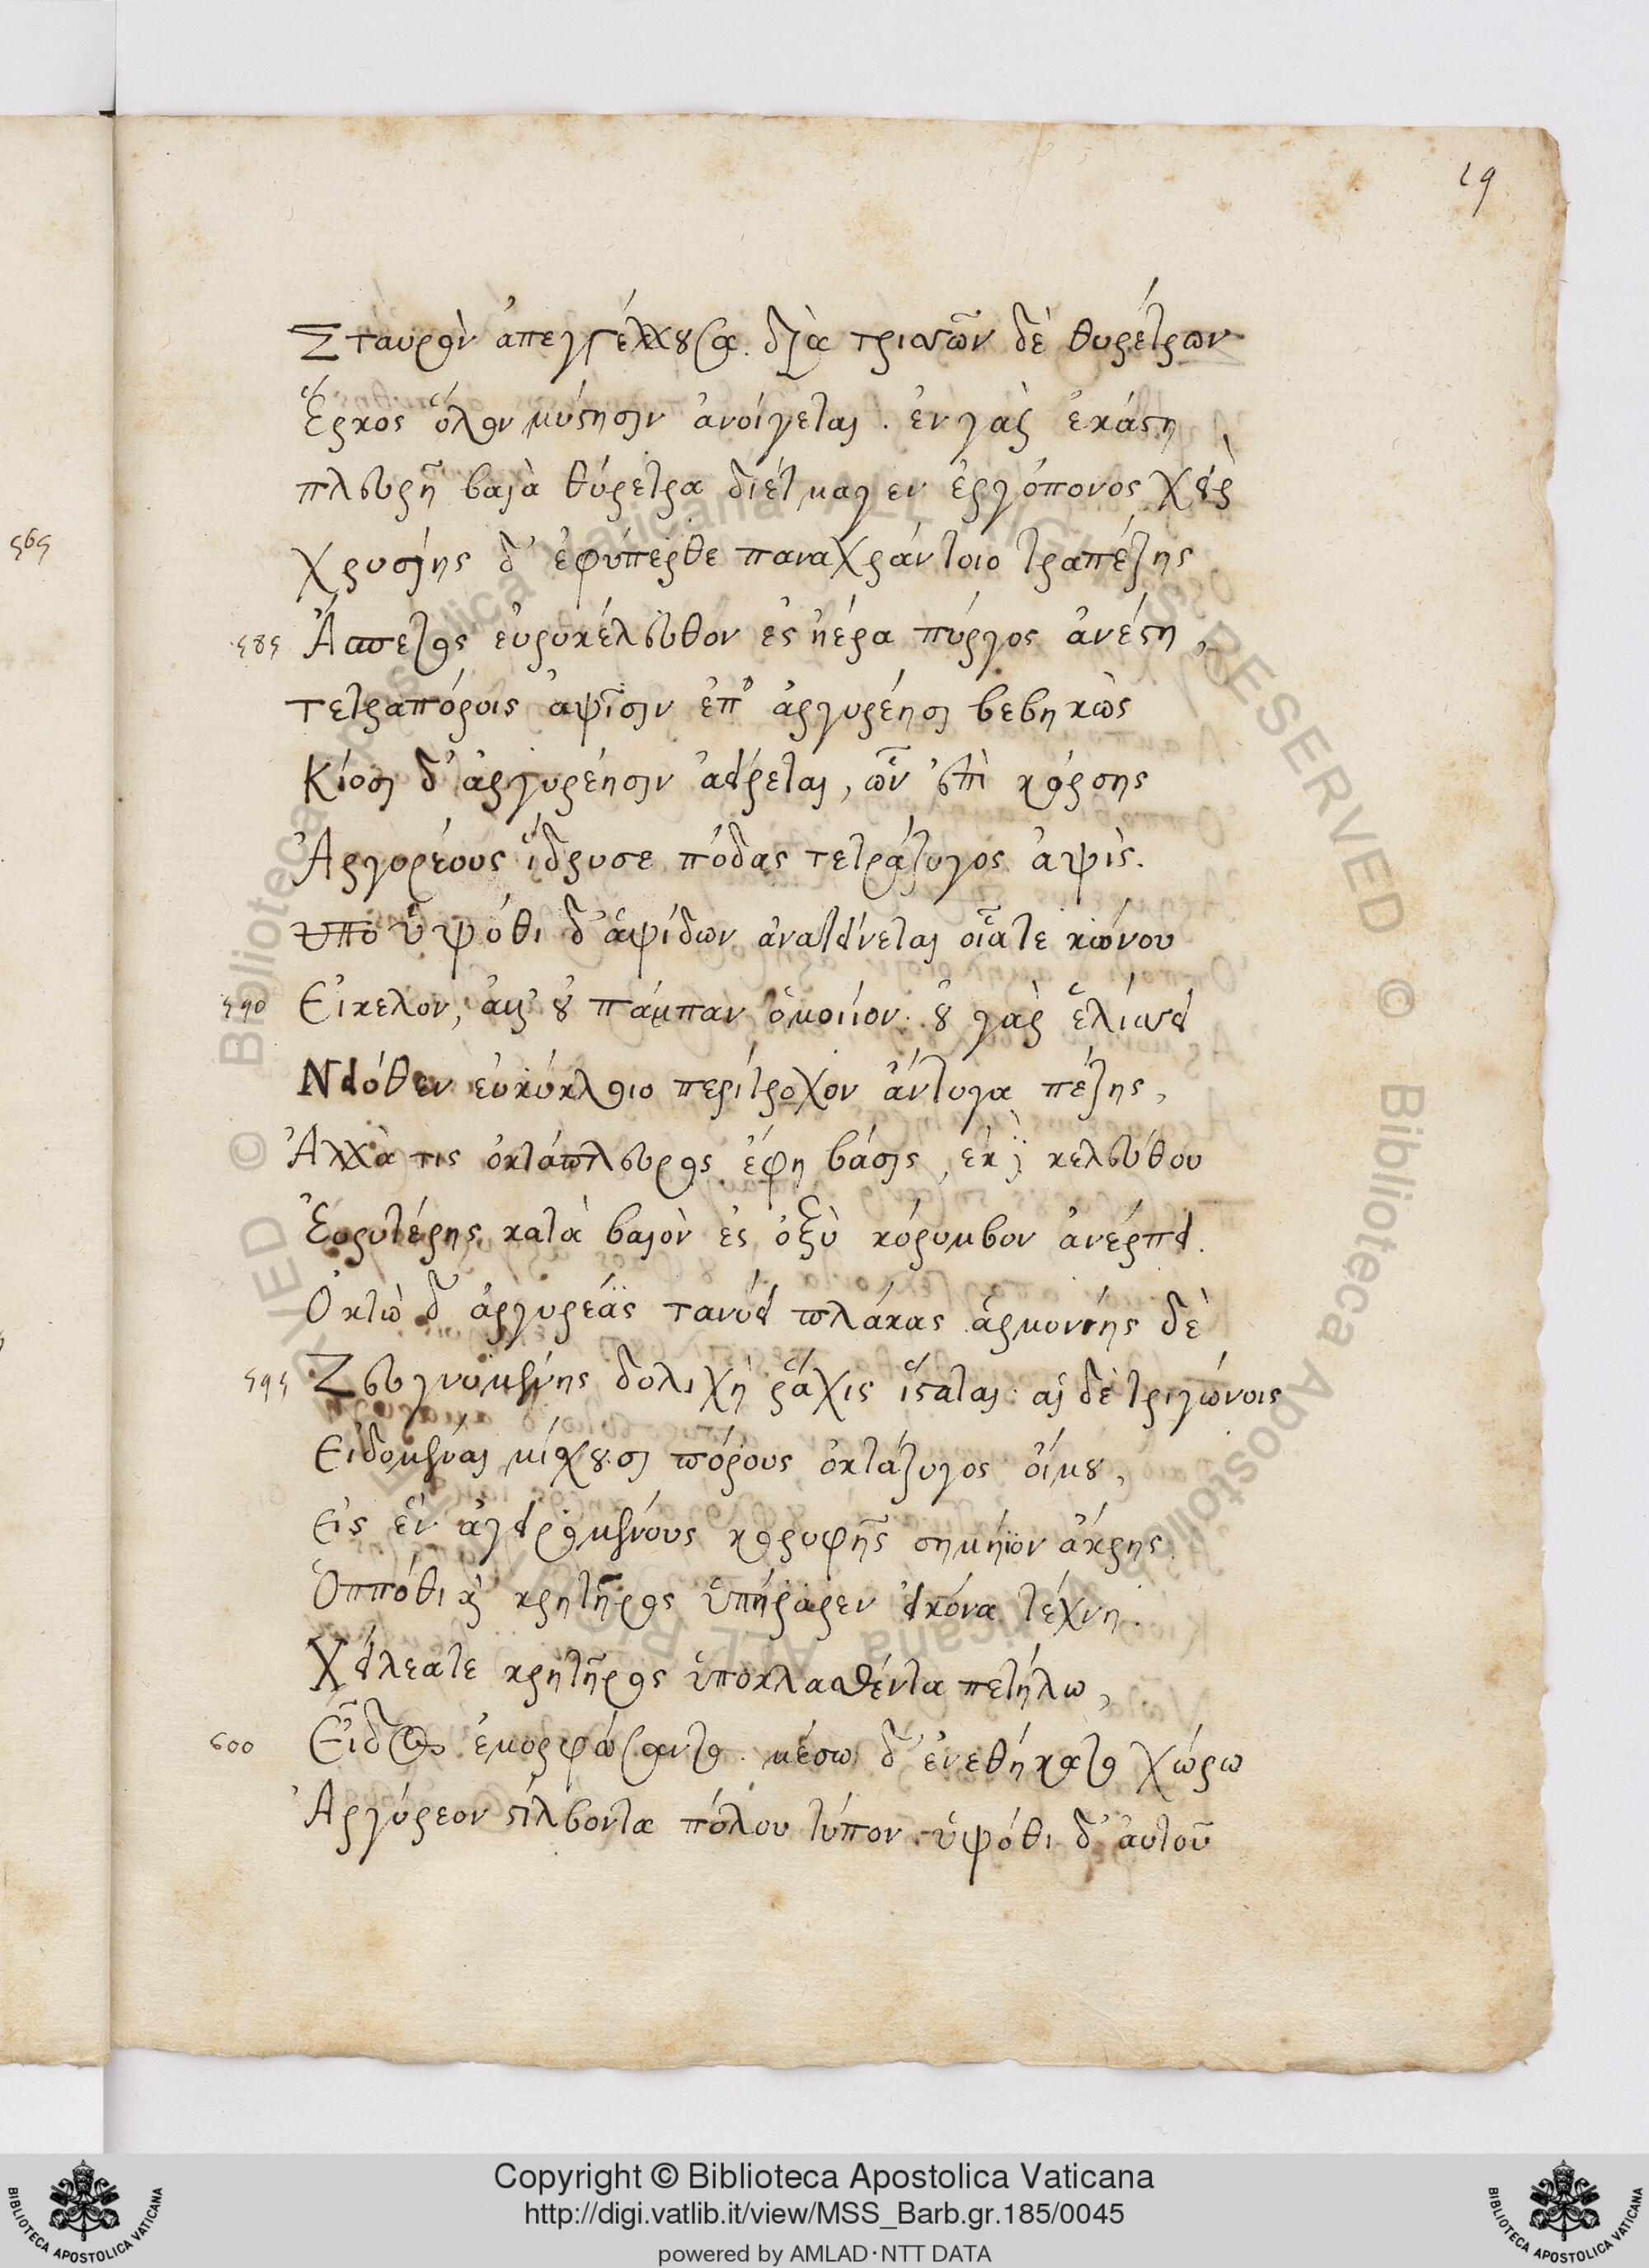 19
Σταυρὸν ἀπεγγέλλουσα. διὰ τρισσῶν δὲ θυρέτρων
Ἕρκος ὅλον μύστησιν ἀνοίγεται. ἐν γὰρ ἑκάστη
πλευρῆ βαιὰ θύρετρα διέτμαγεν ἐργόπονος χεὶρ
565
Χρυσίης δ' ἐφύπερθε παναχράντοιο τραπέζης
585 Ἄσπετος εὐρυκέλευθον ἐς ἠέρα πύργος ἀνέστη,
τετραπόροις ἀψῖσιν ἐπ' ἀργυρέησι βεβηκὼς
Κίοσι δ' ἀργυρέησιν ἀείρεται, ὧν ἐπὶ κόρσης
Ἀργορέους ἵδρυσε πόδας τετράζυγος ἀψίς.
ὑπο ὑψόθι δ' ἀψίδων ἀνατείνεται οἷάτε κώνου
590 Εἴκελον, ἀλλ' οὐ πάμπαν ὁμοίιον. οὐ γὰρ ἑλίσσει
Νειόθεν εὐκύκλοιο περίτροχον ἄντυγα πέζης,
Ἀλλὰ τις ὀκτάπλευρος ἔφη βάσις, ἐκ δὲ κελεύθου
Εὐρυτέρης κατὰ βαιὸν ἐς ὀξὺ κόρυμβον ἀνέρπει.
Ὀκτὼ δ' ἀργυρέας τανύει πλάκας ἁρμονίης δὲ
595 Ζευγνυμένης δολιχὴ ῥάχις ἵσταται. αἱ δὲ τριγώνοις
Εἰδομέναι μίσγουσι πόρους ὀκτάζυγος οἴμου,
Εἰς ἓν ἀγειρομένους κορυφῆς σημήϊον ἄκρης.
Ὁππόθι καὶ κρητῆρος ὑπήραρεν εἰκόνα τέχνη.
Χείλεατε κρητῆρος ὑποκλασθέντα πετήλω,
600 Εἶδος ἐμορφώσαντο. μέσω δ' ἐνεθήκατο χώρω
Ἀργύρεον στίλβοντα πόλου τύπον. ὑψόθι δ' αὐτοῦ
Copyright © Biblioteca Apostolica Vaticana
http://digi.vatlib.it/view/MSS_Barb.gr.185/0045
powered by AMLAD·NTT DATA
BIBLIOTECA APOSTOLICA VATICANA
BIBLIOTECA APOSTOLICA VATICANA
© Biblioteca Apostolica Vaticana ALL RIGHTS RESERVED
© Biblioteca Apostolica Vaticana ALL RIGHTS RESERVED